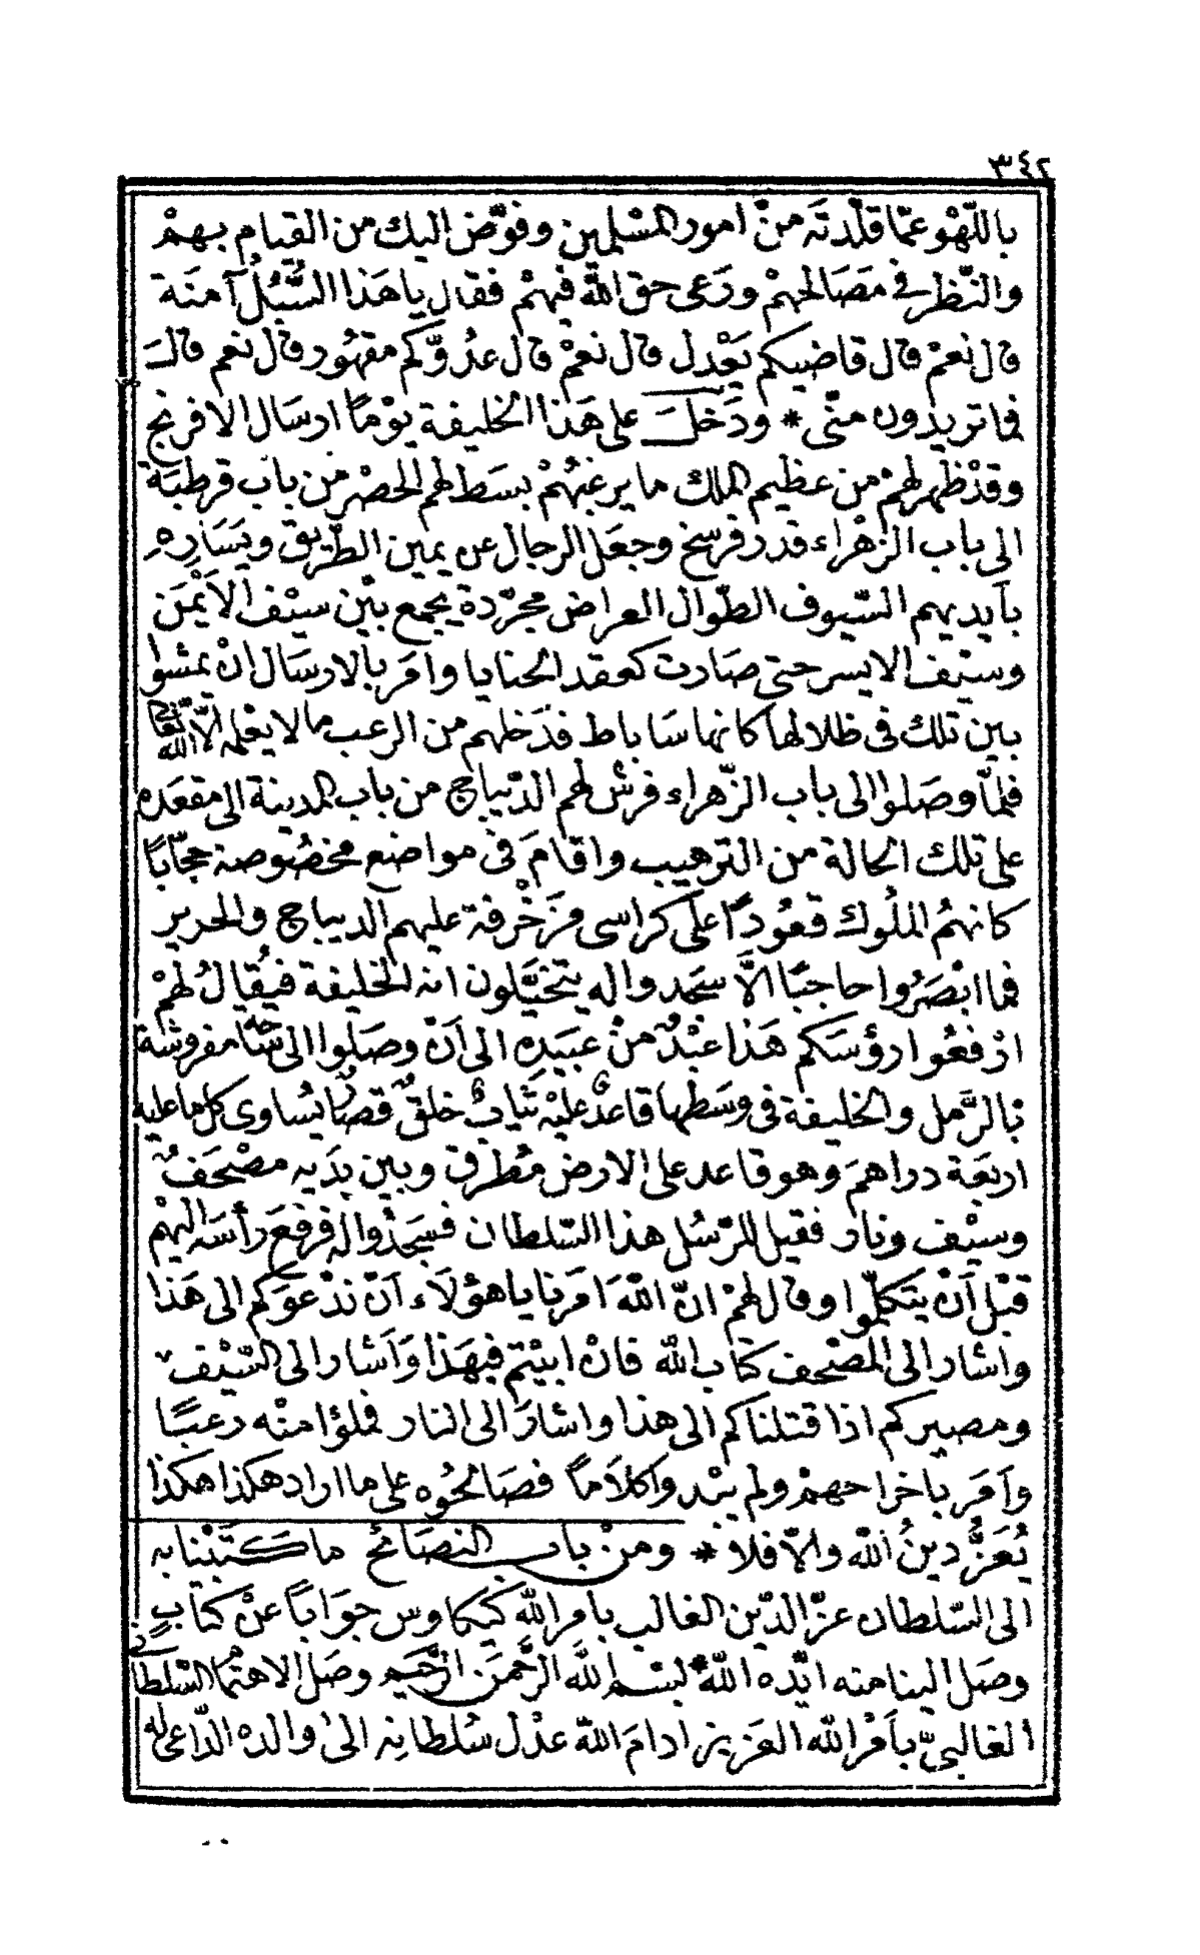 ٣٤٢
باللّهْو عمّا قلّدتَه منْ امور المسْلمين وفوّض اليك من القيام بهمْ
والنّظر فى مَصَالحهمْ ورَعى حق اللّه فيهمْ فقال يا هَذا السُّبُلُ آمنَة
قال نعَمْ قال قاضيكم يَعْدل قال نعَمْ قال عدُوّكم مقهُور قال نعم قالَ
فما تريدُون منّى * ودَخلَ على هَذا الخليفة يوْمًا ارسَال الافرنج
وقدْ ظهر لهمْ من عظيم الملك ما يرعَبُهُمْ بسَط لهم الحصْر من باب قرطبَة
الى باب الزهْراء قدر فرسخ وجعَل الرجال عن يمين الطّريق ويَسَارِهِ
بأيديهم السّيوف الطّوال العراض مجرّدة يجمع بيْن سيْف الاَيْمَن
وسيْف الايسر حتى صَارت كعقد الحنايا وامَر بالارسَال انْ يمشوا
بين تلك فى ظلالها كانها سَاباط فدَخلهم من الرعب ما لا يعْلمه الّا اللّه تعالى
فلمّا وصَلوا الى باب الزّهراء فرش لهم الدّيباج من باب المدينة الى مقعَده
على تلك الحالة من الترهيب واقامَ فى مواضع مخصُوصة حجّابًا
كانهُم الملُوك قعُودًا على كراسى مزَخْرفة عليهم الديباج والحرير
فما ابْصَرُوا حاجبًا الّا سَجَدوا له يتخيّلون انه الخليفة فيُقالُ لهُمْ
ارْفعُوا رؤسَكم هَذا عبْدٌ منْ عَبيَدِهِ الى اَنْ وصَلوا الى سَاحَة مفروشة
بالرَّمل والخليفة فى وسَطها قاعدٌ عليْه ثيابٌ خلقٌ قصَارٌ يُساوى كل ما عليه
اربعَة دراهمَ وهو قاعد على الارض مُطرق وبين يدَيه مصْحَفٌ
وسيْف ونار فقيل للرّسُل هذا السّلطان فسَجَدُوا له فرفعَ رأسَه اليْهم
قبْل اَنْ يتَكلّموا وقال لهُمْ انّ اللّهَ اَمَرنا يا هؤلَاء اَنْ ندْعوَكم الى هَذا
واَشار الى المصْحف كتاب اللّه فانْ ابيْتم فبهَذا وَاَشار الى السّيْف
ومصيركم اذا قتلناكم الى هذا واشارَ الى النار فملؤا منْه رعبًا
وأمَر باخراجهمْ ولم يبْدوا كلاَمًا فصَالحُوه على ما اراد هكذا هكذا
يُعَزُّ دينُ اللّه والّا فلا * ومنْ باب النصَائح ما كَتَبْنا به
الى السّلطان عزّ الدّين الغالب بامر اللّه كيكاوس جوَابًا عنْ كتابٍ
وصَل الينا منه ايّده اللّهُ بسْم اللّه الرّحْمن الرّحيم وصَل الاهتمام السّلطانى
الغالبىّ باَمْر اللّه العَزيز ادامَ اللّه عدْل سُلطانِه الى والده الدّاعى له